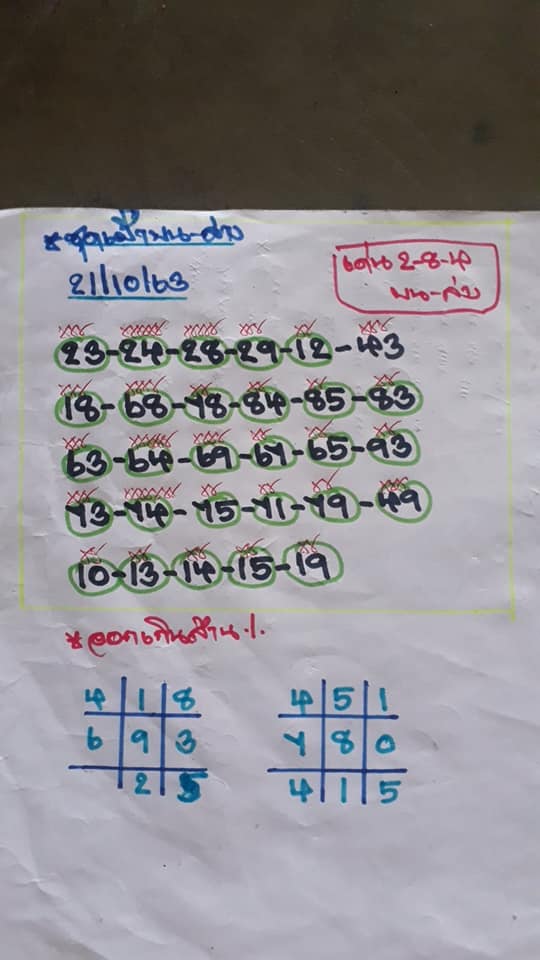 21/10/63
เด่น 2-8-4
บน-ล่าง
23-24-28-29-12-43
18-68-78-84-85-83
63-64-69-67-65-93
73-74-75-71-79-49
10-13-14-15-19
4 1 8
6 9 3
2 5
4 5 1
7 8 0
4 1 5